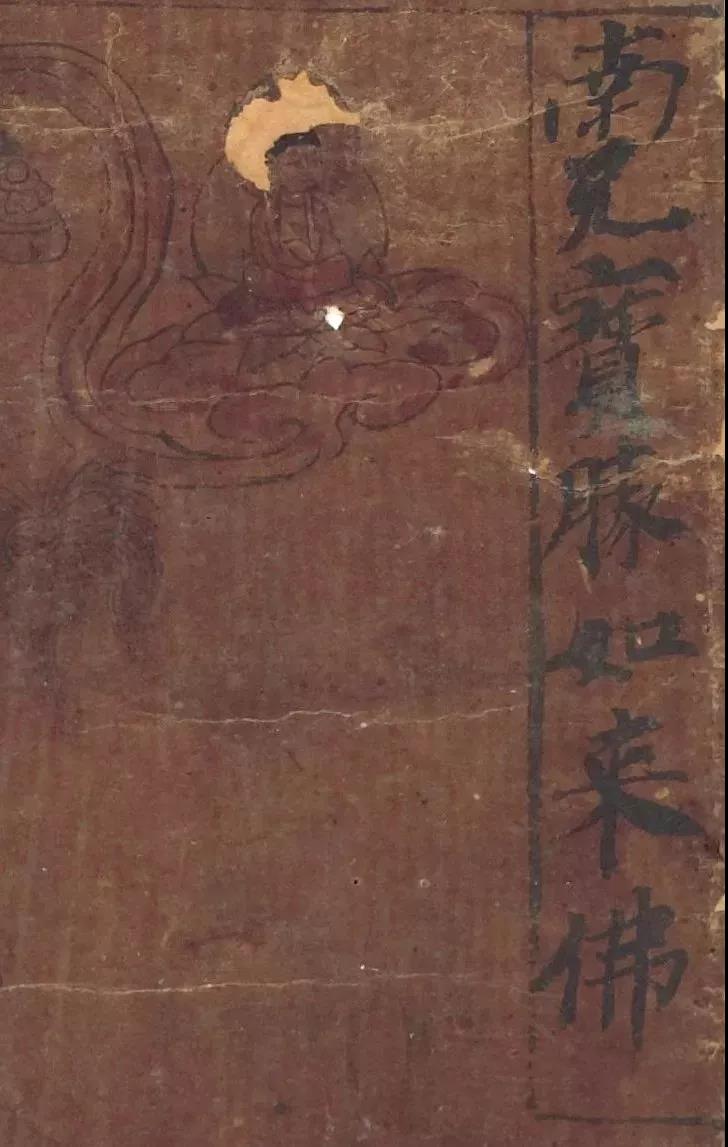 南无寳勝如来佛